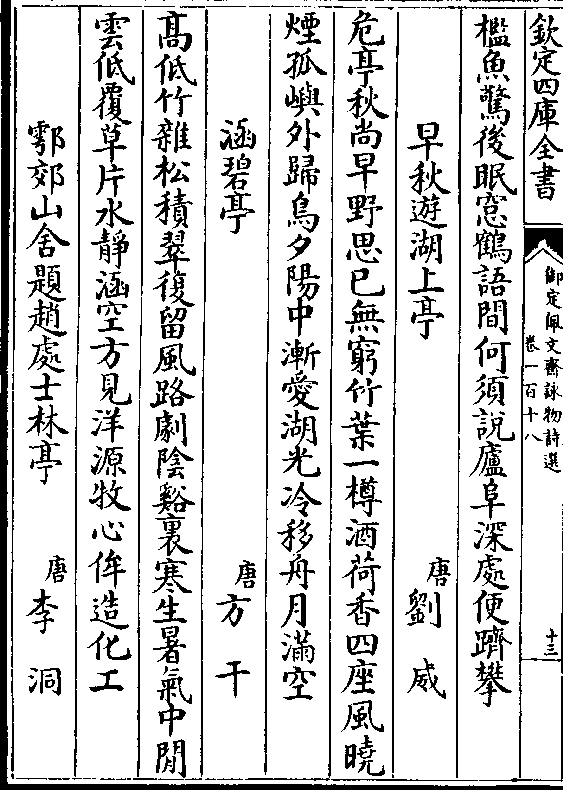 欽定四庫全書
御定佩文齋詠物詩選
卷一百十八
十三
檻魚驚後眠窓鶴語間何須說廬阜深處便躋攀
早秋遊湖上亭
唐劉威
危亭秋尚早野思已無窮竹葉一樽酒荷香四座風曉
煙孤嶼外歸鳥夕陽中漸愛湖光冷移舟月滿空
涵碧亭
唐方干
髙低竹雜松積翠復留風路劇陰谿裏寒生暑氣中閒
雲低覆草片水靜涵空方見洋源牧心侔造化工
鄠郊山舍題趙處士林亭
唐李洞